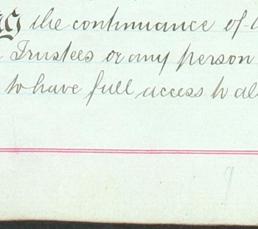 the continuance of
Trustees or any person
to have full access to al